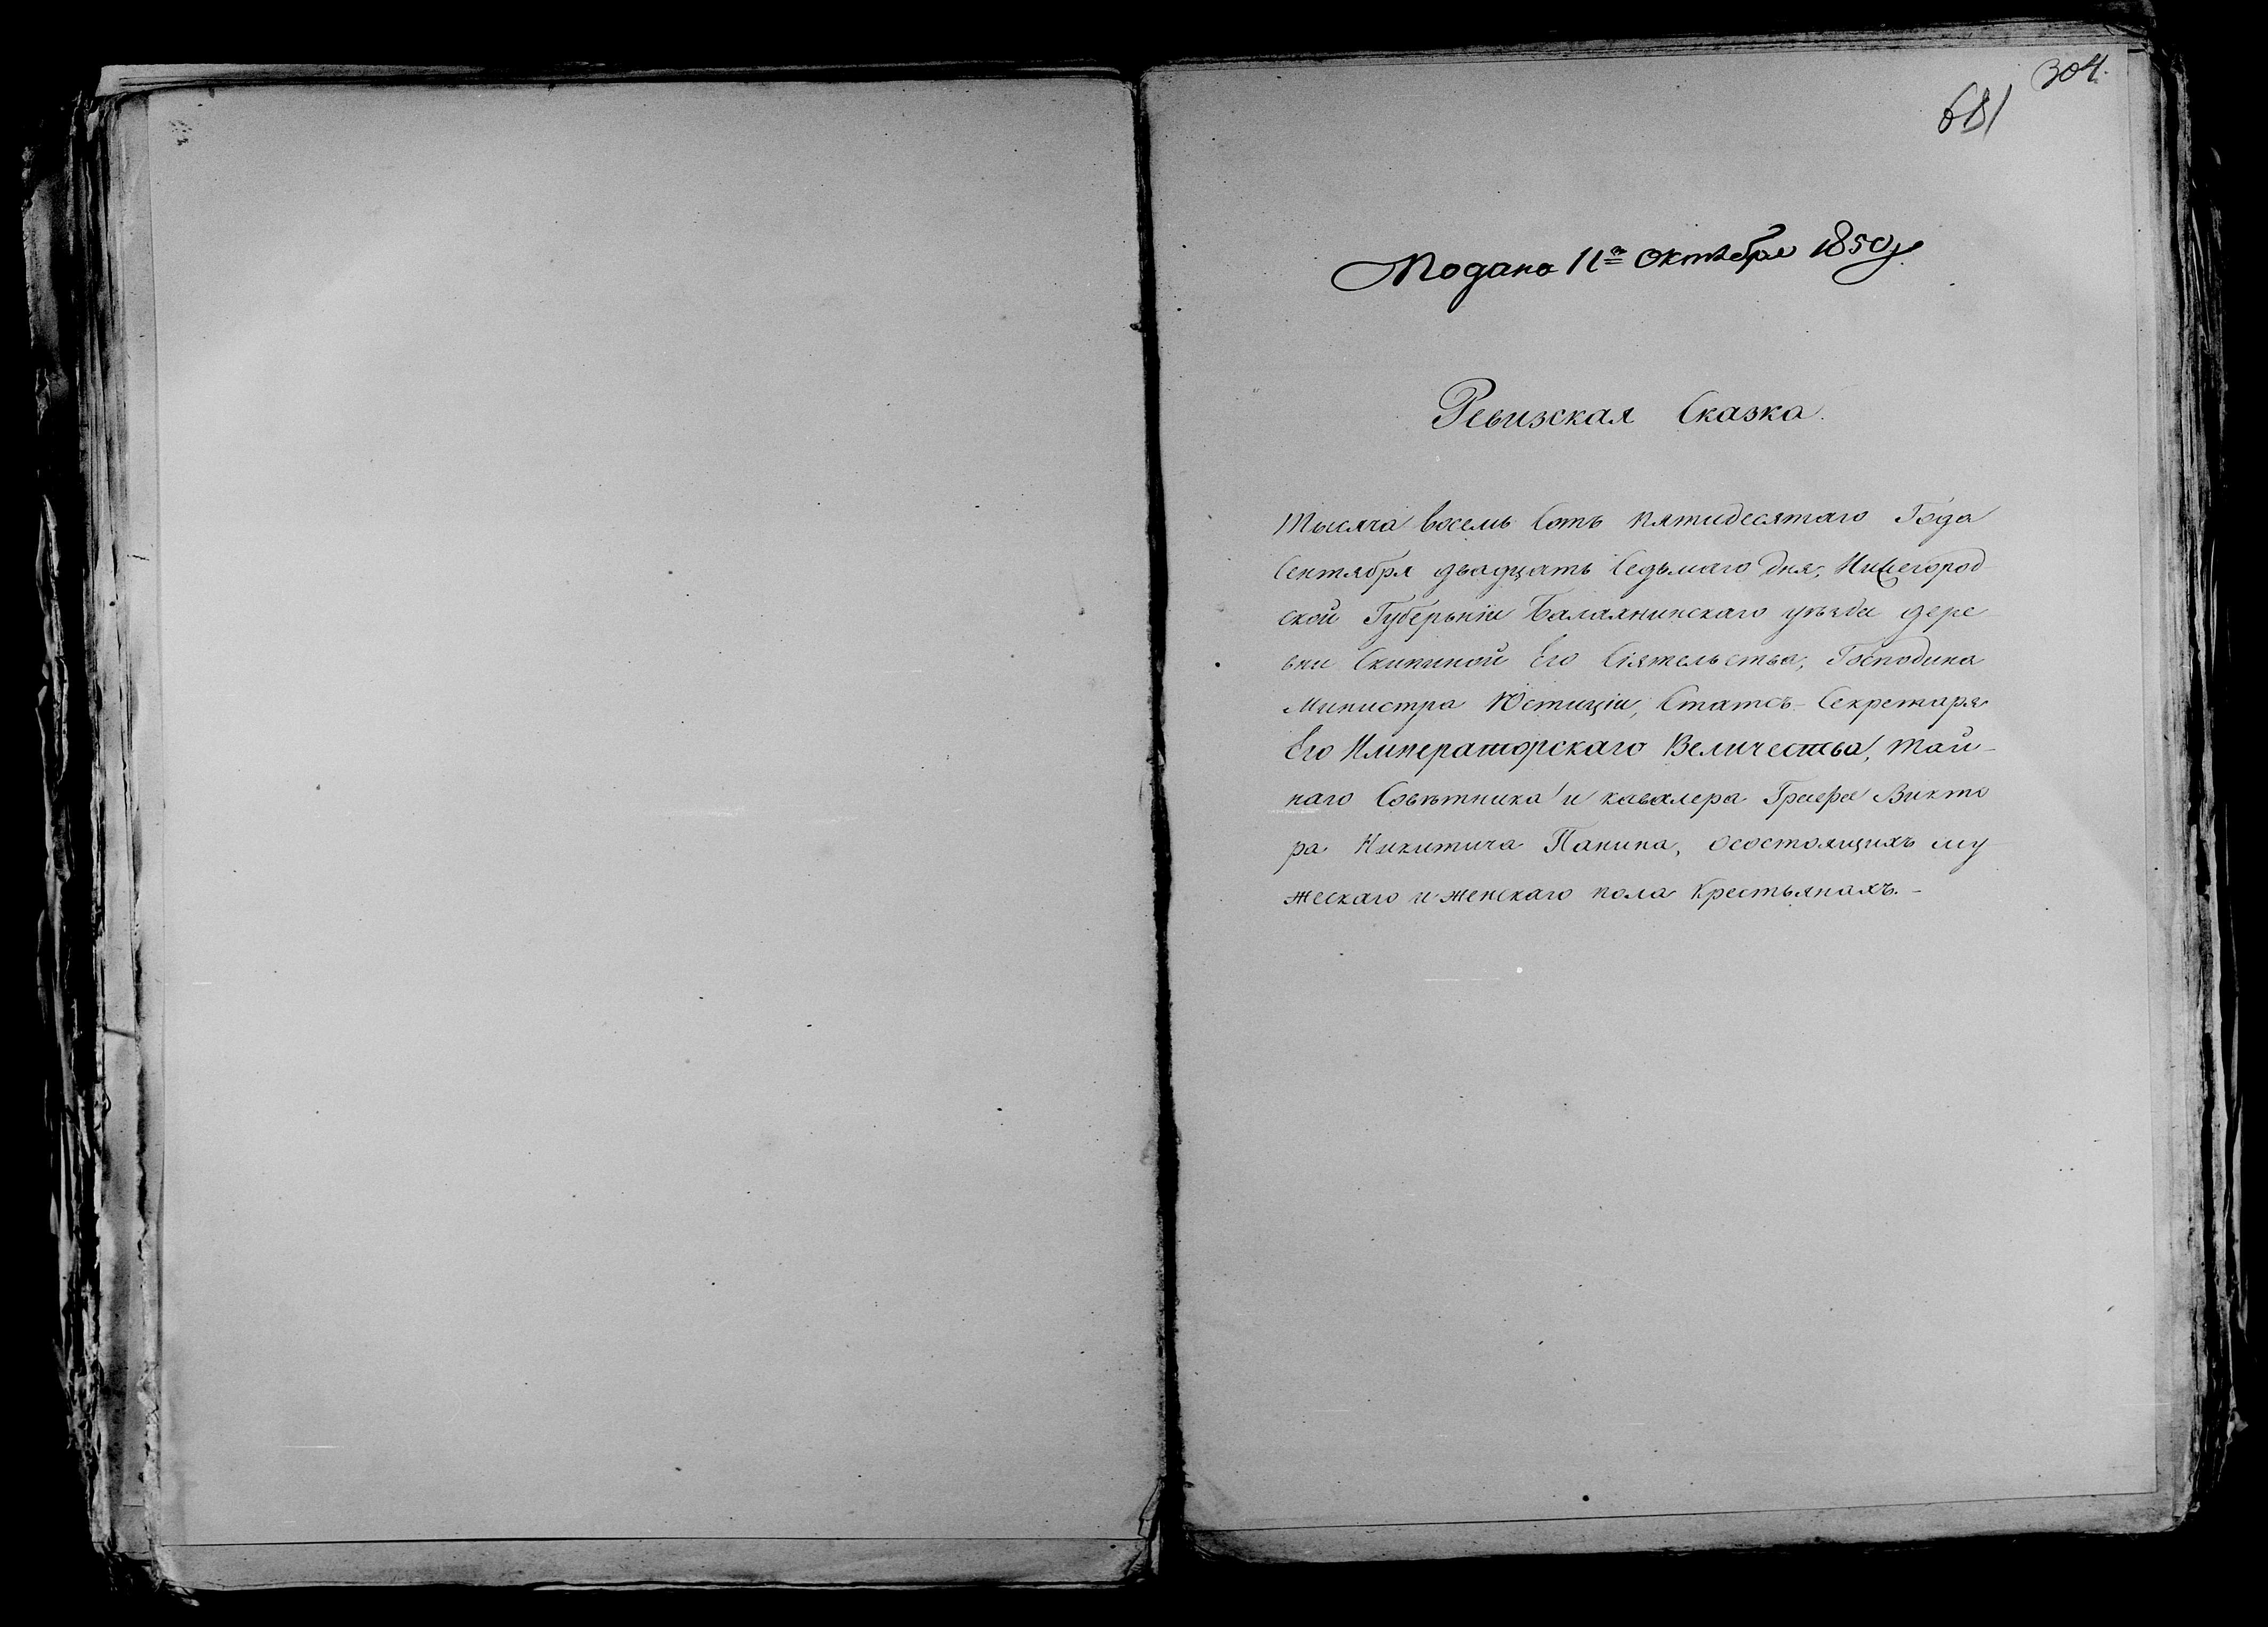 304.
681
Подана 11го Октября 1850 г
Ревизская Сказка.
Тысяча восемь Сотъ пятидесятаго Года
Сентября двадцать Седьмаго дня, Нижегород
ской Губерьніи Балахнинскаго уѣзда дере
вни Скипиной Его Сіятельства, Господина
Министра Юстиціи, Статсъ-Секретаря
Его Императорскаго Величества, тай-
наго Совѣтника и кавалера Графа Викто
ра Никитича Панина, осостоящихъ му
жескаго и женскаго пола Крестьянахъ.-